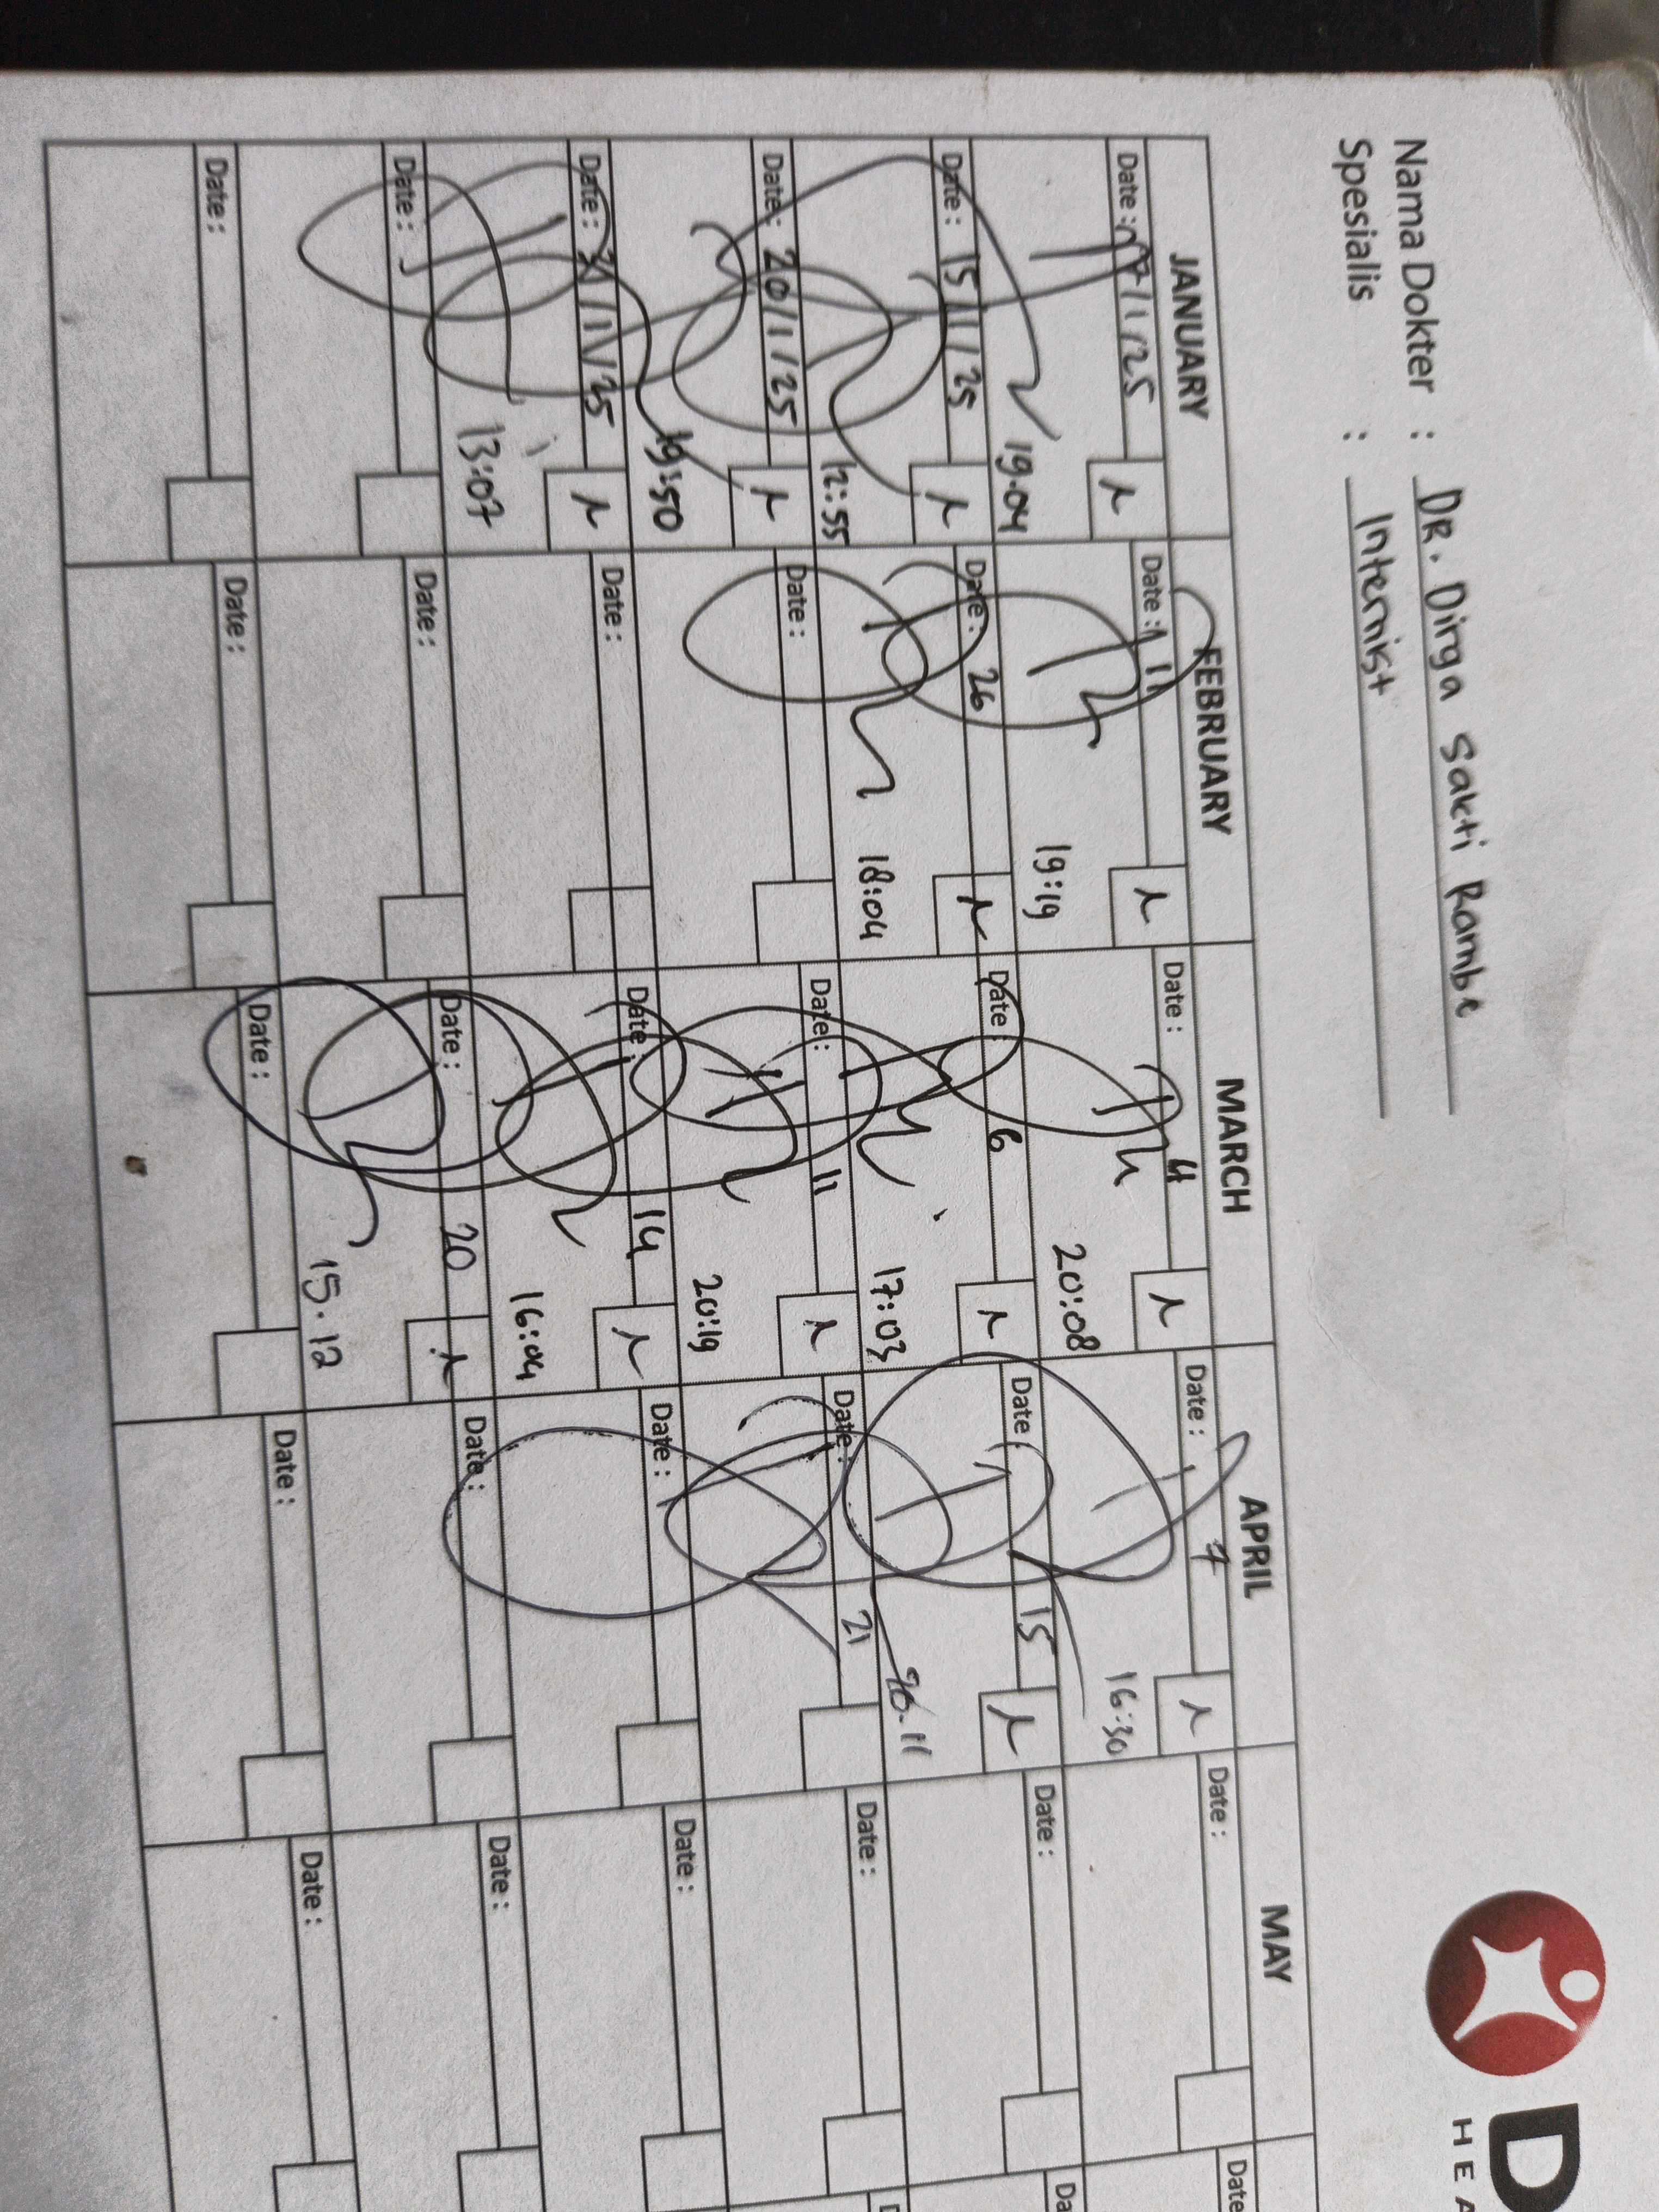 Nama Dokter : DR. Dirga Sakti Rambe
Spesialis : Internist
D
HEA
JANUARY FEBRUARY MARCH APRIL MAY
Date : 7/1/25 Date : 11 Date : 4 Date : 7 Date : Date
19.04 19:19 20:08 16:30
Date : 15/1/25 Date : 26 Date : 6 Date : 15 Date : Da
12:55 18:04 17:03
Date : 20/1/25 Date : Date : 11 Date : 21 Date : D
19:50 20:19
Date : 21/1/25 Date : Date : 14 Date : Date :
13:07 16:04
Date : Date : Date : 20 Date : Date :
15.12
Date : Date : Date : Date : Date :